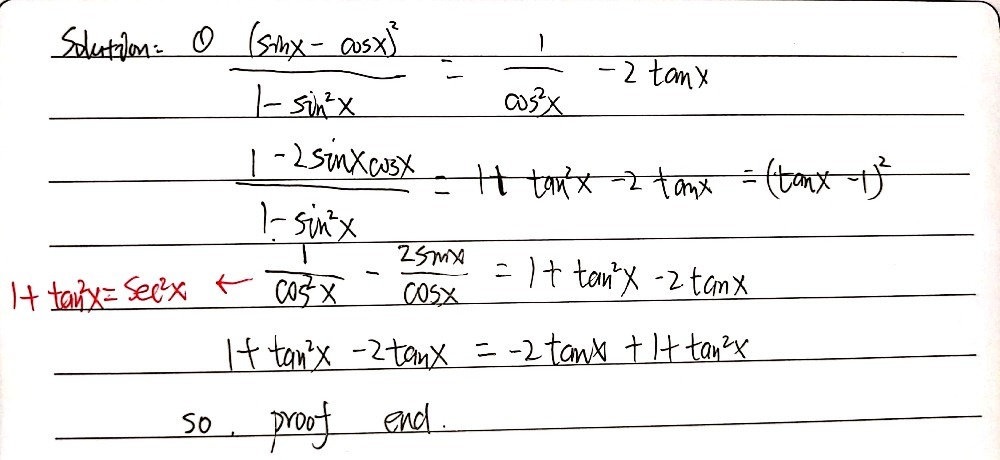 Solution: ① (sinx - cosx)² / (1 - sin²x) = 1 / cos²x - 2 tanx
(1 - 2 sinx cosx) / (1 - sin²x) = 1 + tan²x - 2 tanx = (tanx - 1)²
1 + tan²x = sec²x ← 1 / cos²x - 2 sinx / cosx = 1 + tan²x - 2 tanx
1 + tan²x - 2 tanx = -2 tanx + 1 + tan²x
so. proof end.